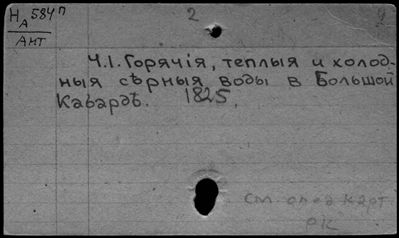 НА 584п 2
АНТ
Ч.I. Горячія, теплыя и холод-
ныя сѣрныя воды в Большой
Кабардѣ. 1825.
см. след карт